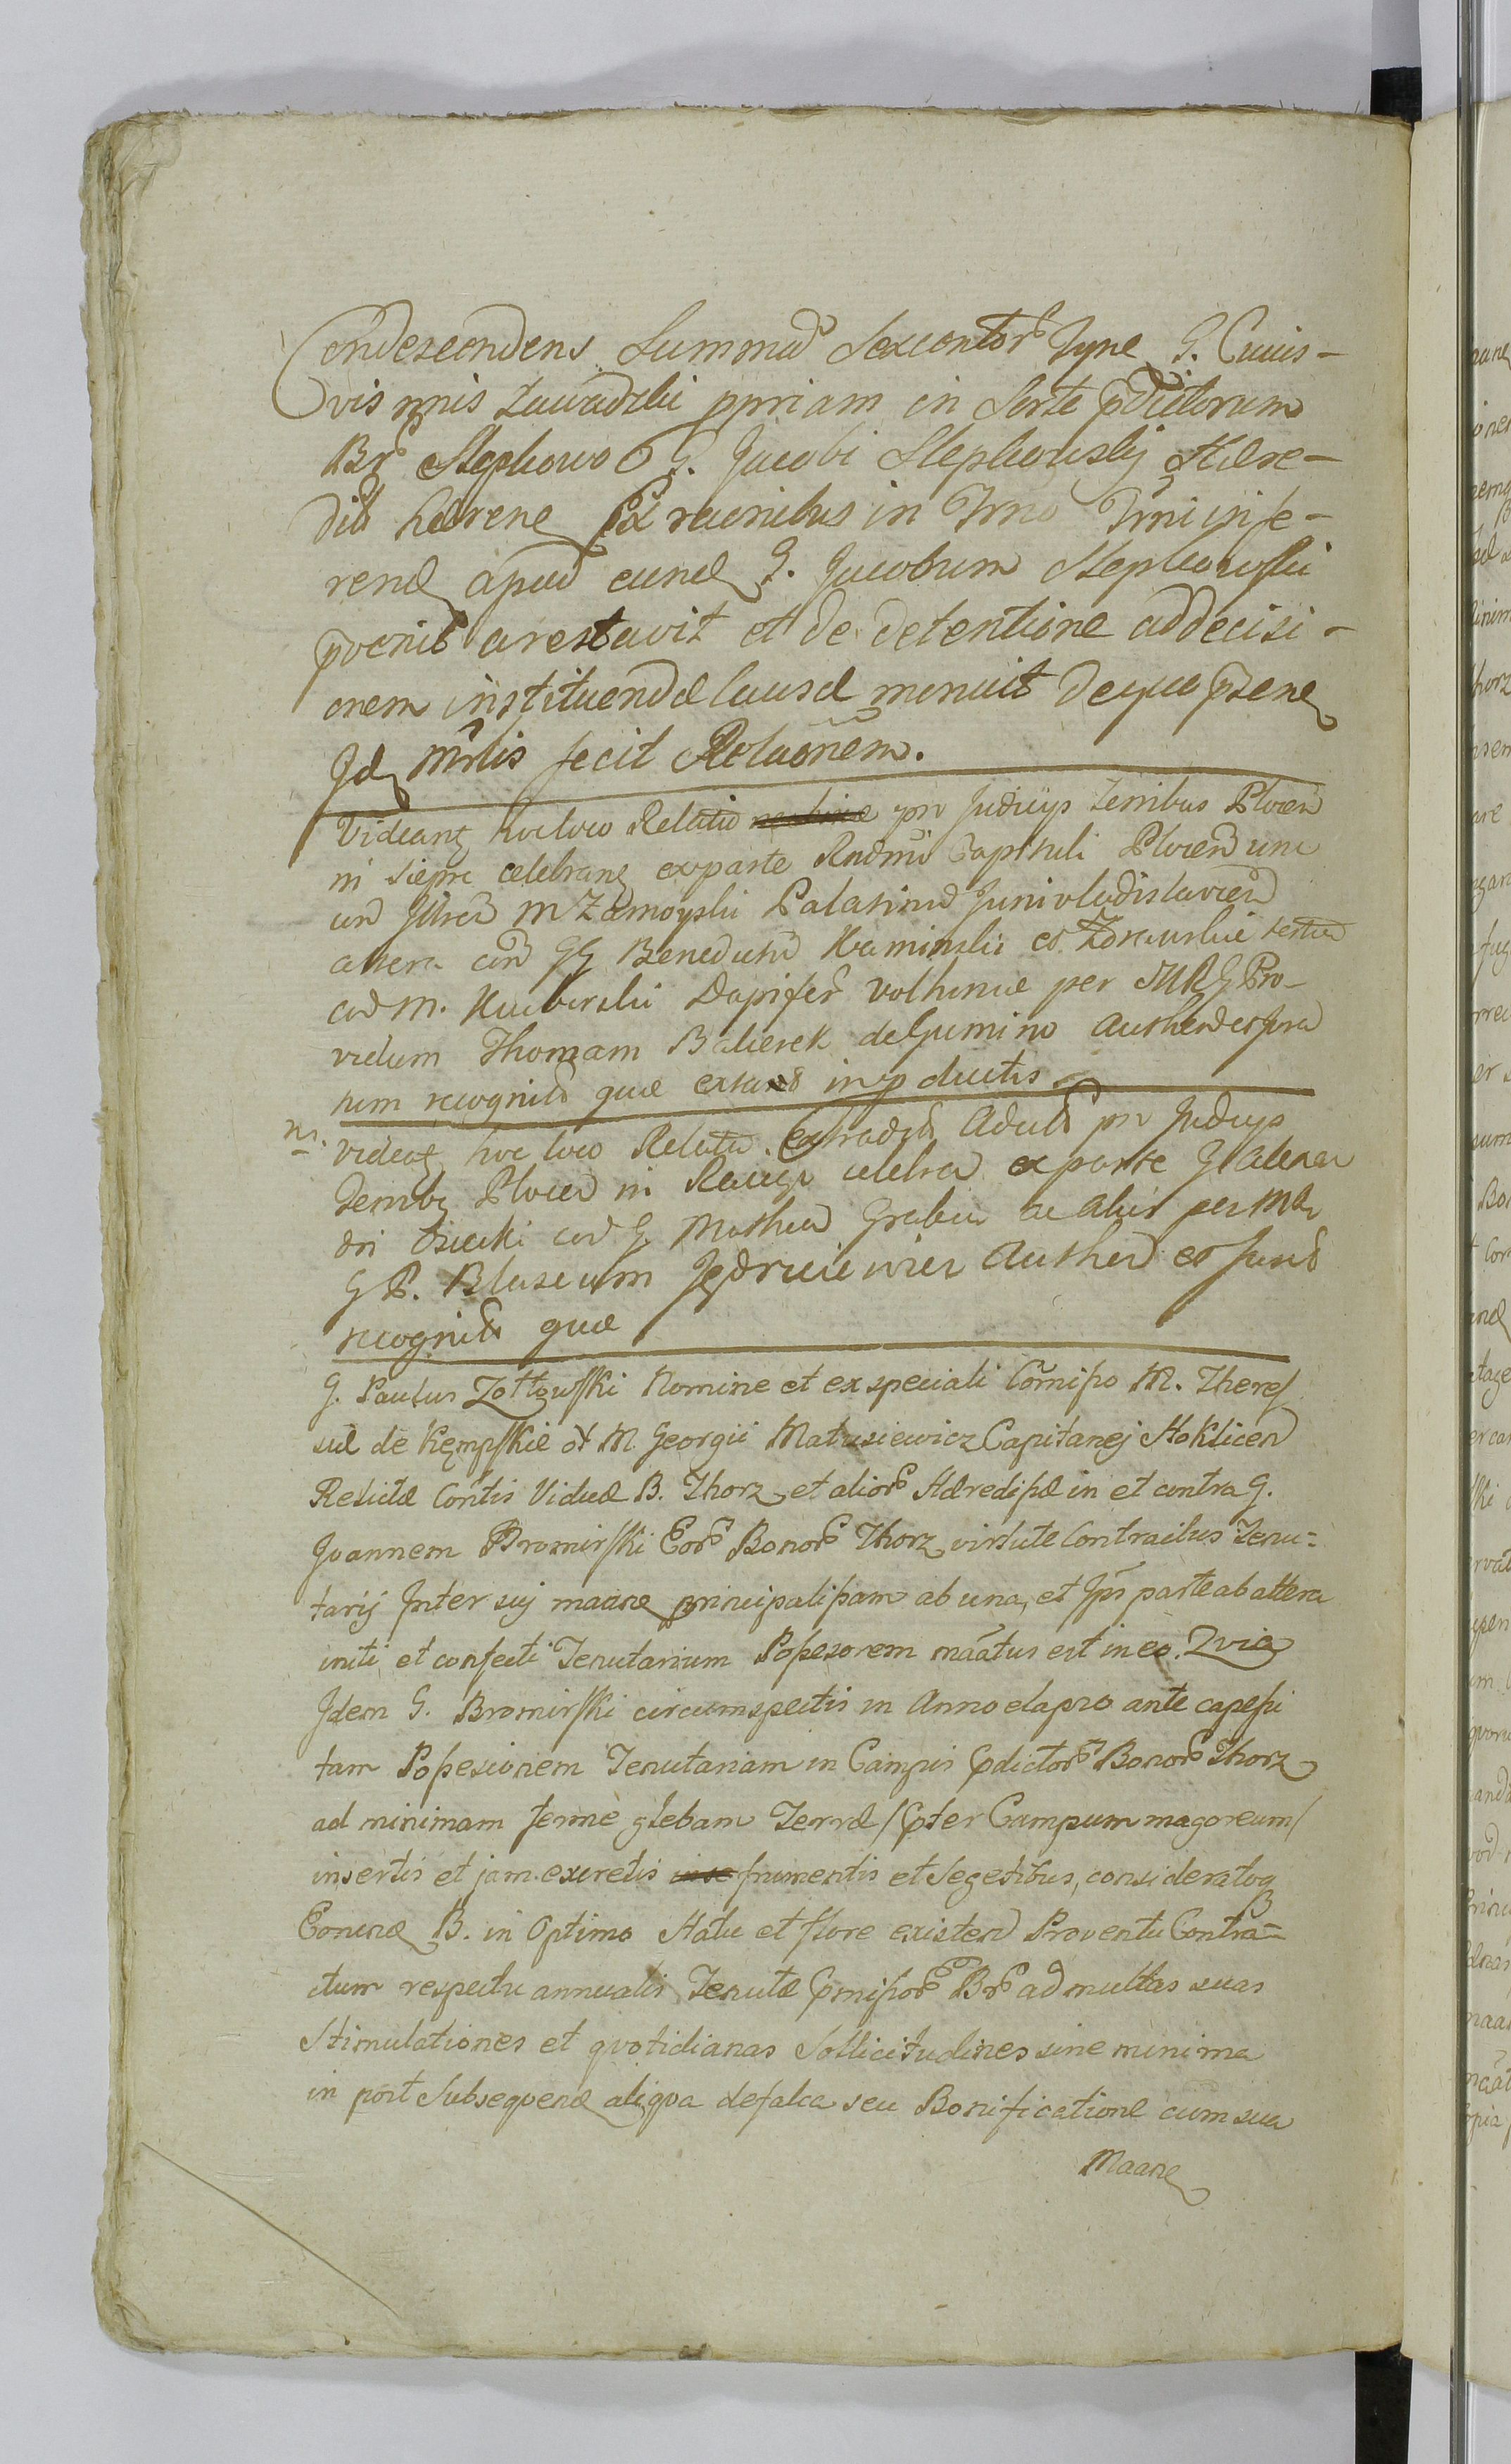 Condescendens Summam Sexcentor Tyne G. Cuius-
vis mnis Zawadzki ppriam in Sorte pdictorum
Br Stepkowo G. Jacobi Stepkowskij Hære-
dit hærene Ex racnibus in Trno Trni infe-
rend apud eund G. Jacobum Stepkowski
pvenit arestavit et de detentione addecisi-
onem instituendæ Causæ monuit de qua psene
Jd Mnlis fecit Relaõnem.
Videant hoc loco Relatio pr Judicys Terribus Plocen
in Sierpc celebrane ex parte Rndmi Capituli Plocen una
cum Illrem M Zamoyski Palatinum Junivladislavien
altera cum GG Benedictum Kaminski et Zorawskie tertia
cum M. Kuberski Dapifer Volhiniæ per MRG Pro-
vidum Thomam Balierek de Gumino Authen et Jura
tum recognit quæ extant in pductis
n. Videat hoc loco Relatio Extradit Adcit pr Judicys
Terrib Plocen in Raciąz celebra ex parte G Alexan
dri Osiecki cum G Matheum Grabia ac alios per MR
G P. Blaseum Jędrzeiewicz Authen et Jurat
recognit quæ
G. Paulus Zołtowski Nomine et ex speciali Comisso M. Theres
suæ de Kępskie ot M. Georgii Matusiewicz Capitanej Stoklicen
Relictæ Contis Viduæ B. Thorz et alior Hæredissæ in et contra G.
Joannem Bromirski Eor Bonor Thorz virtute Contractus Tenu=
tarij Inter suj maane principalissam ab una, et Ips parte ab altera
initi et confecti Tenutarium Possesorem maatus est in eo. Qvia
Idem G. Bromirski circumspectis in Anno elapso ante capessi
tam Possesionem Tenutariam in Campis pdictor Bonor Thorz
ad minimam ferme glebam Terræ / pter Campum magoreum/
insertis et jam excretis frumentis et Segetibus, consideratoq
Eorund B. in Optimo Statu et flore existen Proventu Contra=
ctum respectu annualis Tenutæ pmissor Br ad multas suas
Stimulationes et qvotidianas Sollicitudines sine minima
in post Subseqvend aliqva defalca seu Bonificatione cum sua
Maane